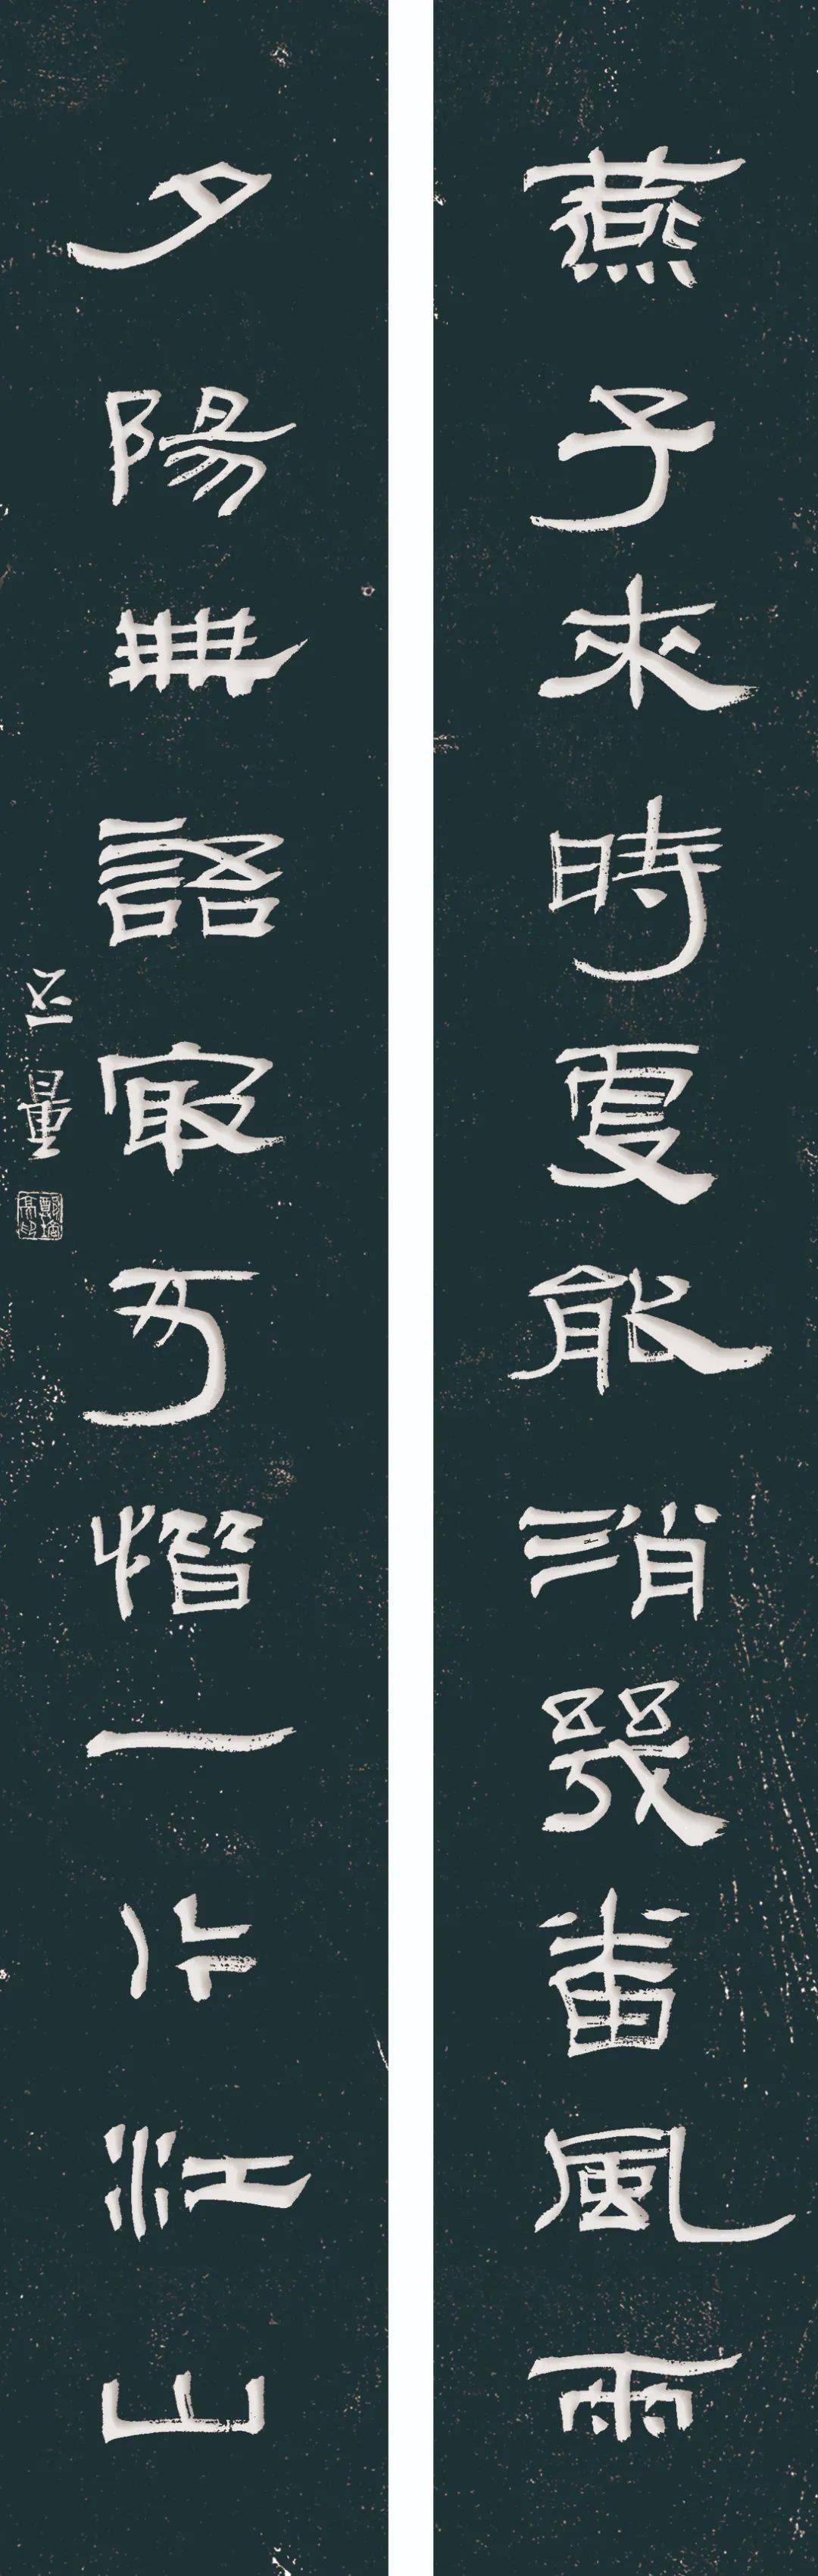 燕子來時更能消幾番風雨
夕陽無語最可惜一片江山
丕量